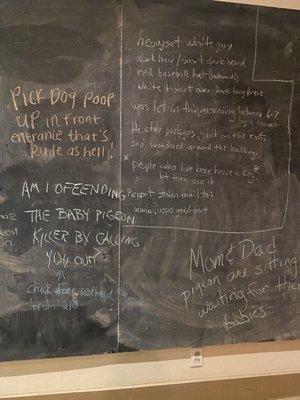 PICK DOG POOP
UP IN FRONT
entrance that's
Rude as hell!
AM I OFEENDING
THE BABY PIGEON
KILLER BY CALLING
YOU OUT
newyset white guy
dark hair / short dark beard
red baseball hat (backwards)
white t-shirt over black long sleeve
was let in this morning between 6-7
He stole packages, shit on the roof,
and wandered around the building.
* people who live here have a key *
let them use it
Report stolen mail to:
www.uspis.gov/report
Mom & Dad
pigeon are sitting
waiting for their
babies